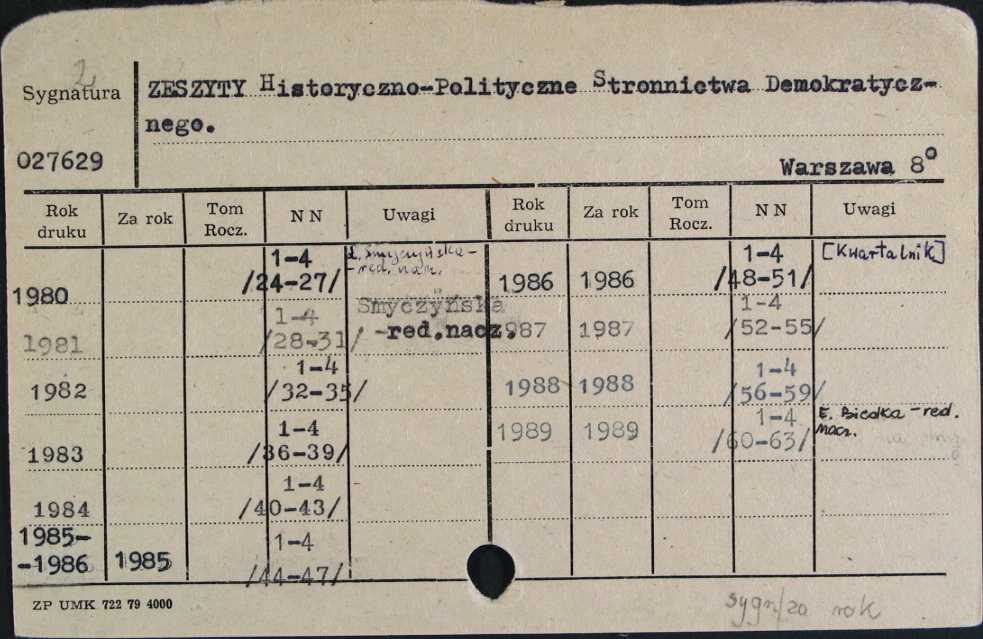 2
Sygnatura
ZESZYTY Historyczno-Polityczne Stronnictwa Demokratycz-
nego.
027629
Warszawa 8°
Rok druku Za rok Tom Rocz. NN Uwagi Rok druku Za rok Tom Rocz. NN Uwagi
1980 1-4 /24-27/ Smyczyńska - red. nacz. 1986 1986 1-4 /48-51/ [Kwartalnik]
Smyczyńska
1981 1-4 /28-31/ -red.nacz. 1987 1987 1-4 /52-55/
1982 1-4 /32-35/ 1988 1988 1-4 /56-59/
1983 1-4 /36-39/ 1989 1989 1-4 /60-63/ E. Biedka - red. nacz.
1984 1-4 /40-43/
1985-
-1986 1985 1-4 /44-47/
ZP UMK 722 79 4000
sygn/za rok